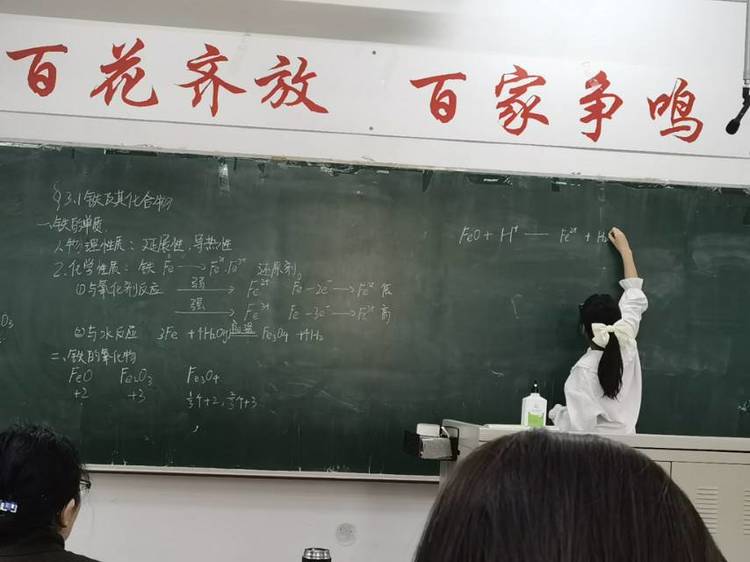 百花齐放 百家争鸣
§3.1铁及其化合物
一、铁的单质
1.物理性质：延展性、导热性
2.化学性质：铁 Fe → Fe²⁺. Fe³⁺ 还原剂。
①与氧化剂反应 弱 → Fe²⁺ Fe - 2e⁻ → Fe²⁺ 低
强 → Fe³⁺ Fe - 3e⁻ → Fe³⁺ 高
②与水反应 3Fe + 4H₂O(g) 高温 Fe₃O₄ + 4H₂
二、铁的氧化物
FeO Fe₂O₃ Fe₃O₄
+2 +3 ⅓个+2, ⅔个+3
FeO + H⁺ — Fe²⁺ + H₂
O₃